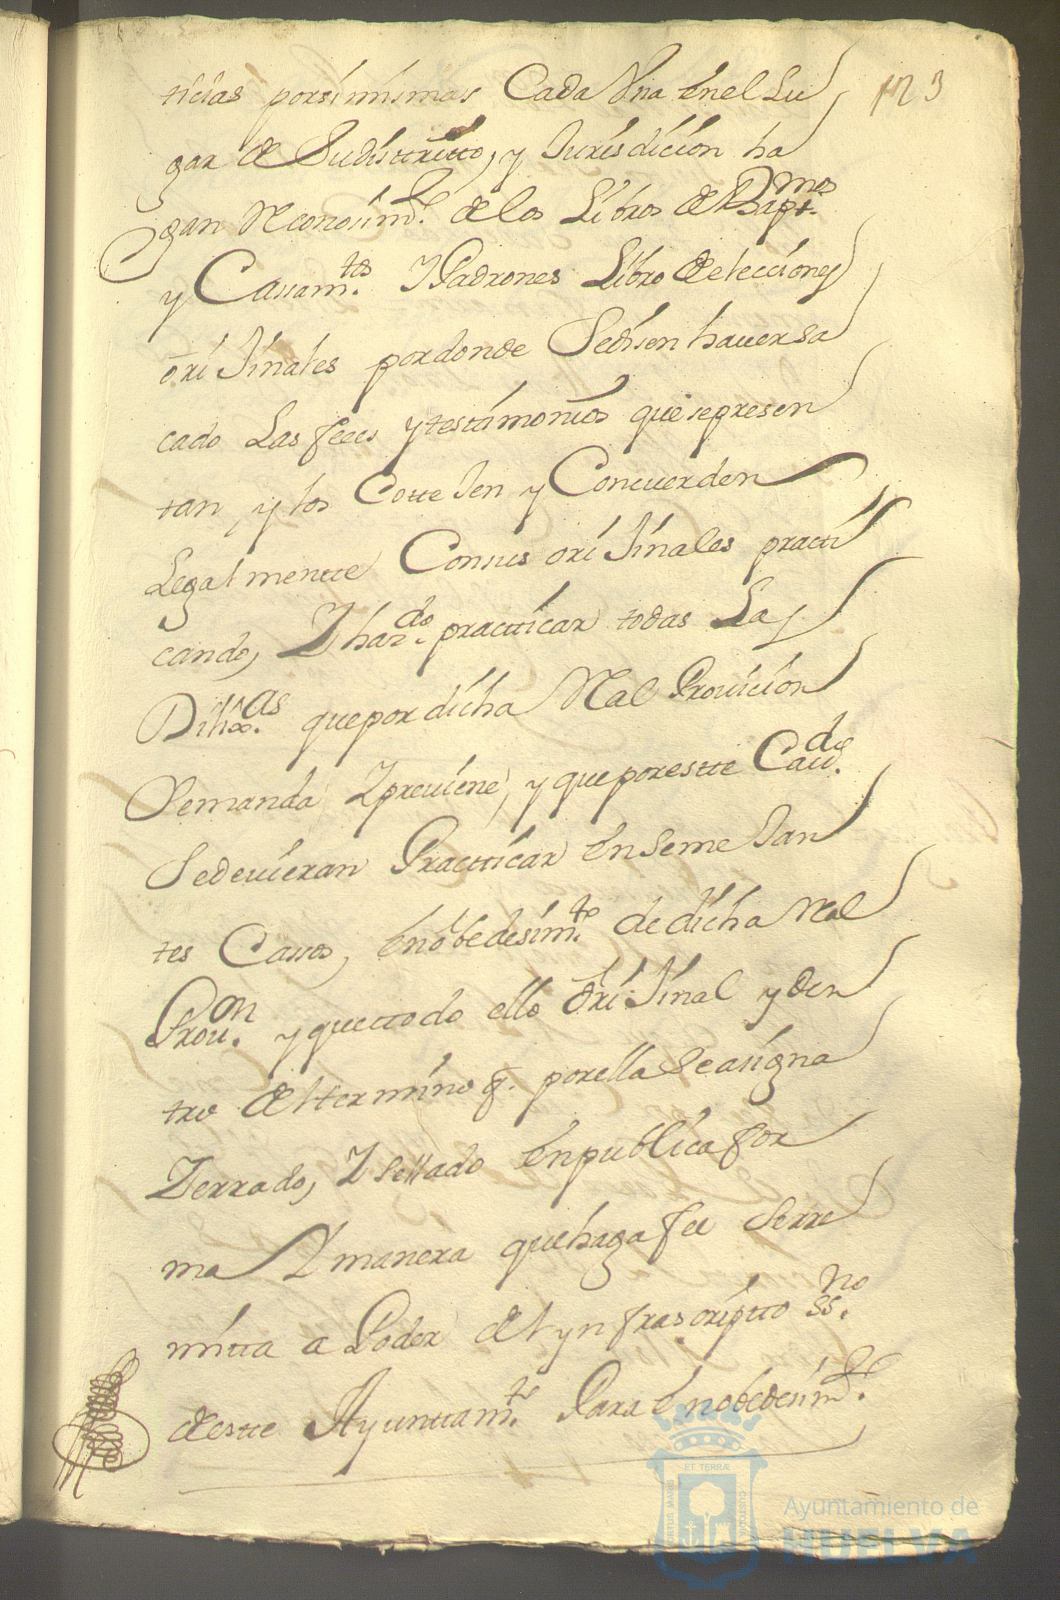 123
ticias porsimismas Cada Vna en el Lu
gar de Sudisttritto, y Jurisdicion ha
gan Reconosim.to de los Libros de Bapt.mos
y Cassam.tos Y Padrones Libro de elecciones
oriJinales pordonde Sedisen hauersa
cado Las fees ytestimonios que represen
tan y los CotteJen y Concuerden
Legalmentte Consus oriJinales practi
cando, Y han.do practticar todas Las
Dilix.as quepor dicha Real Prouicion
Semanda Y preuiene, y queporestte Cau.do
Sedeuieran Practticar enSemeJan
tes Cassos, enobedesim.to de dicha Real
Prou.on y quettodo ello OriJinal y den
tro del termino q. porella Seasigna
Zerrado, Y Sellado enpublica for
ma Y manera quehaga fee Serre
mitta a Poder del ynfrascriptto ss.no
destte Ayunttam.to Para enobedesim.to
Ayuntamiento de
HUELVA